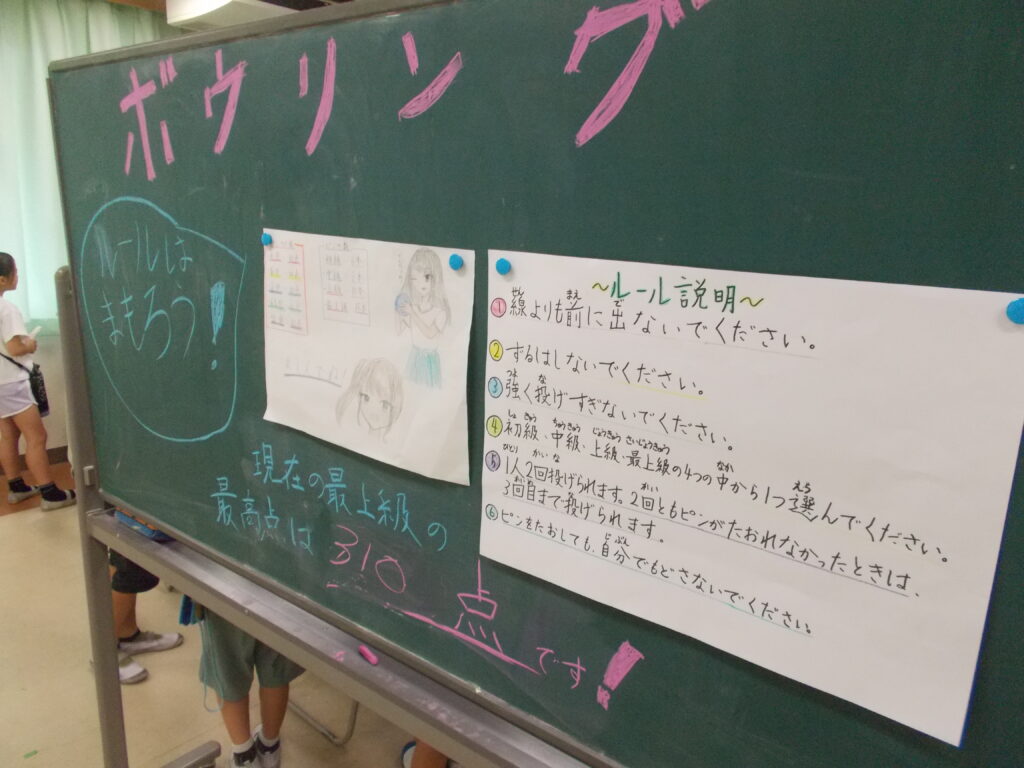 ボウリング
ルールは
まもろう!
現在の最上級の
最高点は
310点です!
~ルール説明~
①線よりも前に出ないでください。
②ずるはしないでください。
③強く投げすぎないでください。
④初級、中級、上級、最上級の4つの中から1つ選んでください。
⑤1人2回投げられます。2回ともピンがたおれなかったときは、
3回目まで投げられます。
⑥ピンをたおしても、自分でもどさないでください。